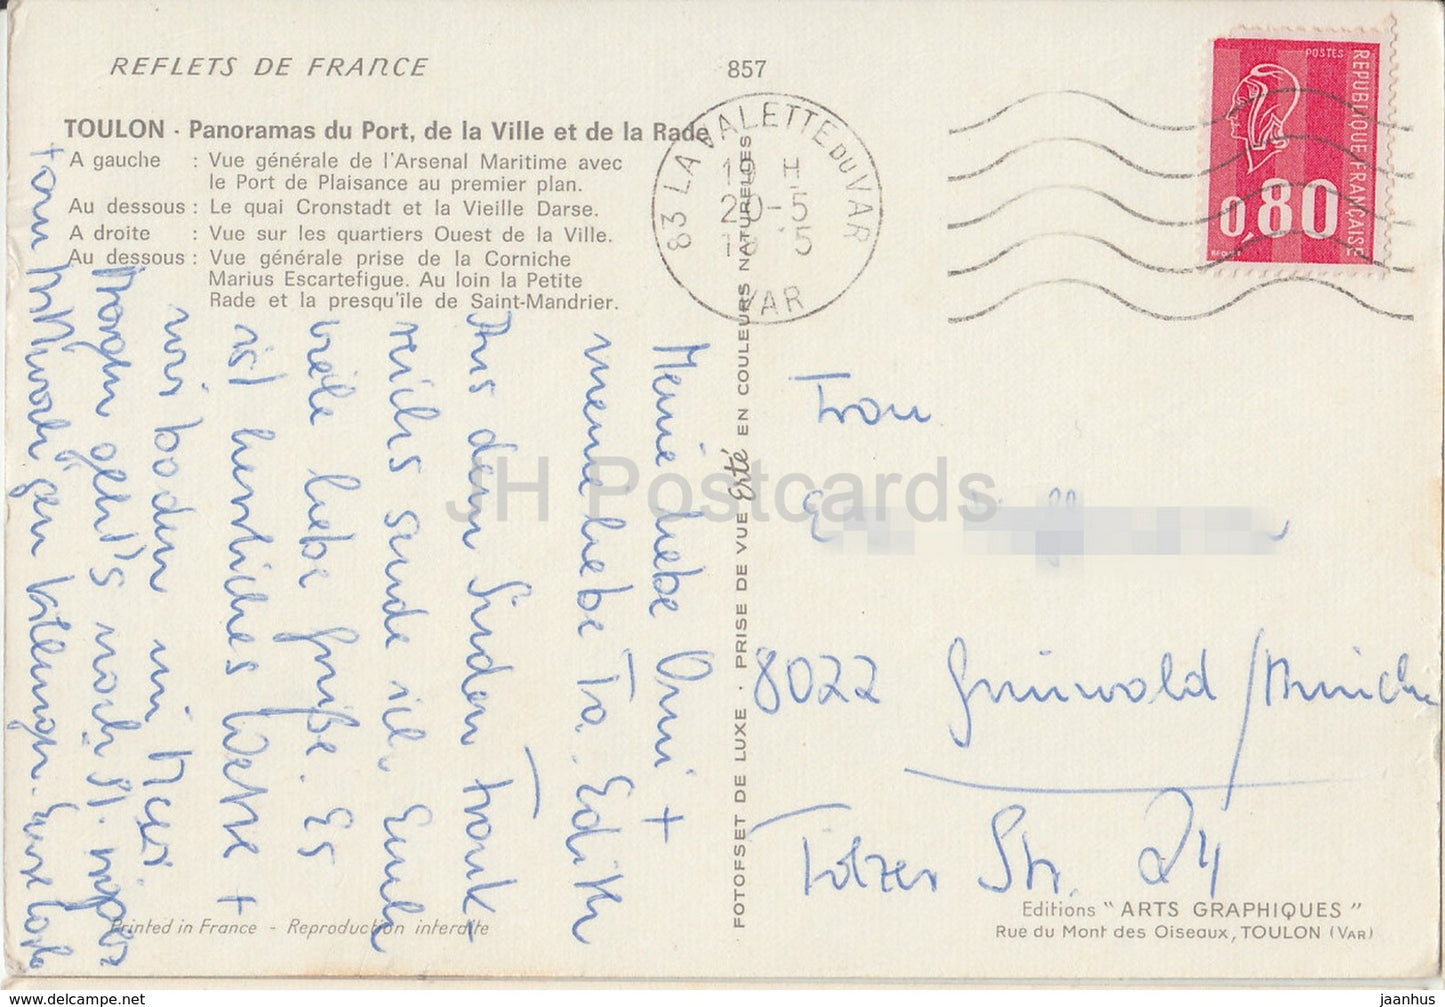 REFLETS DE FRANCE
857
TOULON - Panoramas du Port, de la Ville et de la Rade
A gauche : Vue générale de l'Arsenal Maritime avec
le Port de Plaisance au premier plan.
Au dessous : Le quai Cronstadt et la Vieille Darse.
A droite : Vue sur les quartiers Ouest de la Ville.
Au dessous : Vue générale prise de la Corniche
Marius Escartefigue. Au loin la Petite
Rade et la presqu'île de Saint-Mandrier.
83 LA VALETTE DU VAR
VAR
20-5
POSTES
REPUBLIQUE FRANÇAISE
0,80
Meine liebe Omi +
meine liebe Ta. Edith
Aus dem Süden Frank-
reichs sende ich Euch
viele liebe Grüße. Es
ist herrliches Wetter +
wir baden im Meer.
Morgen geht's nach St.
FOTOFSET DE LUXE - PRISE DE VUE Erté EN COULEURS NATURELLES
Frau
8022 Grünwald/München
Tölzer Str. 24
Printed in France - Reproduction interdite
Editions "ARTS GRAPHIQUES"
Rue du Mont des Oiseaux, TOULON (VAR)
JH Postcards
www.delcampe.net
jaanhus